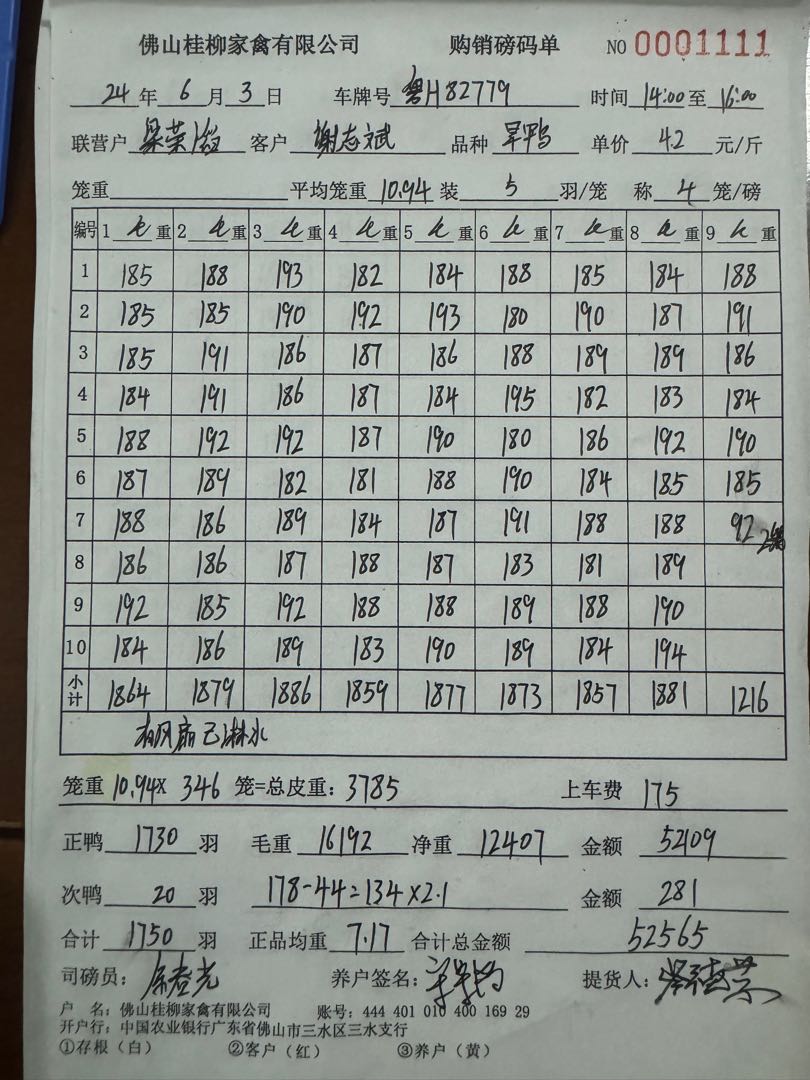 佛山桂柳家禽有限公司 购销磅码单 NO 0001111
24 年 6 月 3 日 车牌号 粤H82779 时间 14:00 至 16:00
联营户 梁荣 客户 谢志斌 品种 旱鸭 单价 4.2 元/斤
笼重 平均笼重 10.94 装 5 羽/笼 称 4 笼/磅
编号 1 毛 重 2 毛 重 3 毛 重 4 毛 重 5 毛 重 6 毛 重 7 毛 重 8 毛 重 9 毛 重
1 185 188 193 182 184 188 185 184 188
2 185 185 190 192 193 180 190 187 191
3 185 191 186 187 186 188 189 189 186
4 184 191 186 187 184 195 182 183 184
5 188 192 192 187 190 180 186 192 190
6 187 189 182 181 188 190 184 185 185
7 188 186 189 184 187 191 188 188 92 2笼
8 186 186 187 188 187 183 181 189
9 192 185 192 188 188 189 188 190
10 184 186 189 183 190 189 184 194
小计 1864 1879 1886 1859 1877 1873 1857 1881 1216
有风扇已淋水
笼重 10.94x 346 笼=总皮重: 3785 上车费 175
正鸭 1730 羽 毛重 16192 净重 12407 金额 52109
次鸭 20 羽 178-44=134x2.1 金额 281
合计 1750 羽 正品均重 7.17 合计总金额 52565
司磅员: 养户签名: 提货人:
户 名: 佛山桂柳家禽有限公司 账号: 444 401 010 400 169 29
开户行: 中国农业银行广东省佛山市三水区三水支行
①存根（白） ②客户（红） ③养户（黄）